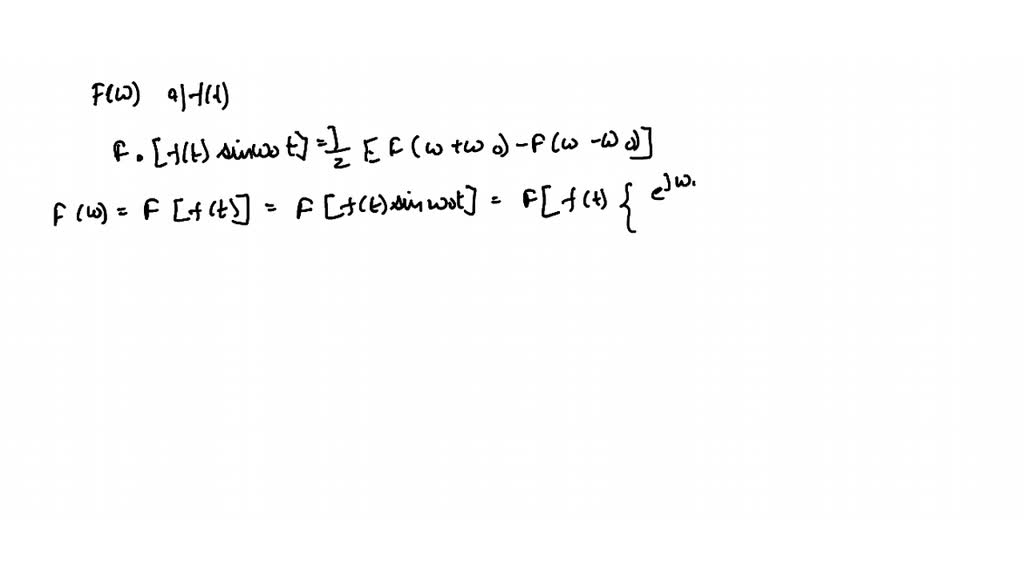 F(ω) of f(t)
F. [f(t) sinωo t] = 1/2 [ F (ω + ωo) - F (ω - ωo)]
F (ω) = F [f (t)] = F [f(t) sin ωot] = F[ f (t) { e^jω.